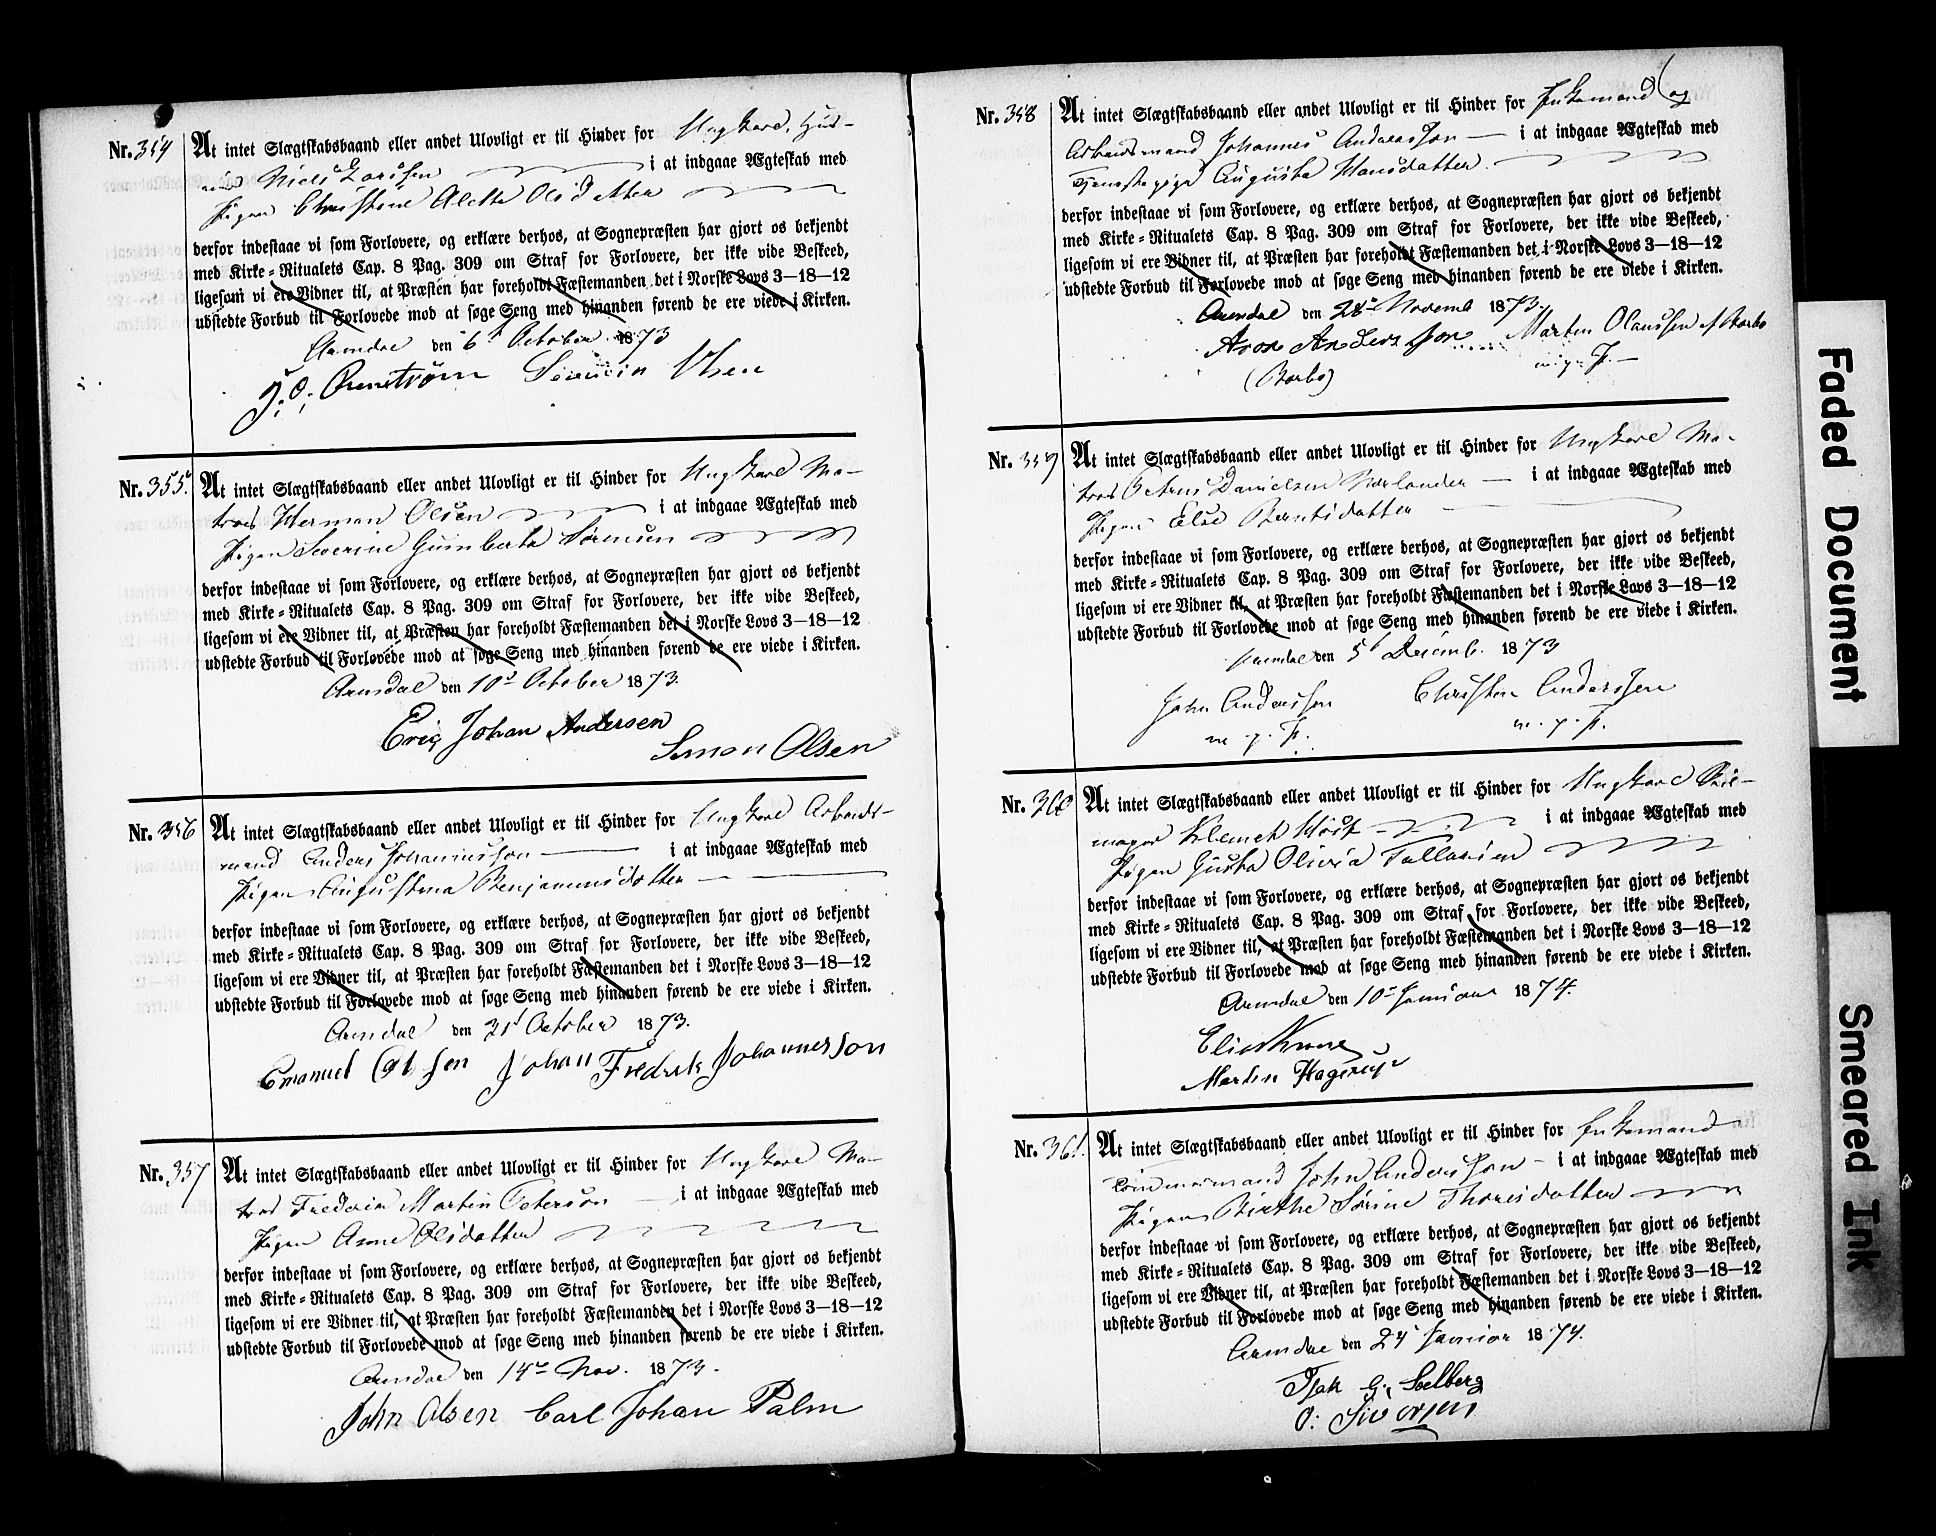 Nr. 354 At intet Slægtskabsbaand eller andet Ulovligt er til Hinder for Ungkarl, Huus-
Niels Larssen i at indgaae Ægteskab med
Pigen Christine Aletta Olsdatter
derfor indestaae vi som Forlovere, og erklære derhos, at Sognepræsten har gjort os bekjendt
med Kirke-Ritualets Cap. 8 Pag. 309 om Straf for Forlovere, der ikke vide Beskeed,
ligesom vi ere Vidner til, at Præsten har foreholdt Fæstemanden det i Norske Lovs 3—18—12
udstedte Forbud til Forlovede mod at søge Seng med hinanden førend de ere viede i Kirken.
Arendal den 6t October 1873
Severin Olsen
Nr. 355. At intet Slægtskabsbaand eller andet Ulovligt er til Hinder for Ungkarl Ma-
tros Herman Olsen i at indgaae Ægteskab med
Pigen Severine Gumberta Sørensen
derfor indestaae vi som Forlovere, og erklære derhos, at Sognepræsten har gjort os bekjendt
med Kirke-Ritualets Cap. 8 Pag. 309 om Straf for Forlovere, der ikke vide Beskeed,
ligesom vi ere Vidner til, at Præsten har foreholdt Fæstemanden det i Norske Lovs 3—18—12
udstedte Forbud til Forlovede mod at søge Seng med hinanden førend de ere viede i Kirken.
Arendal den 10d October 1873.
Eric Johan Andersen
Simon Olsen
Nr. 356 At intet Slægtskabsbaand eller andet Ulovligt er til Hinder for Ungkarl Arbeids-
mand Anders Johannesson i at indgaae Ægteskab med
Pigen Augustina Benjaminsdotter
derfor indestaae vi som Forlovere, og erklære derhos, at Sognepræsten har gjort os bekjendt
med Kirke-Ritualets Cap. 8 Pag. 309 om Straf for Forlovere, der ikke vide Beskeed,
ligesom vi ere Vidner til, at Præsten har foreholdt Fæstemanden det i Norske Lovs 3—18—12
udstedte Forbud til Forlovede mod at søge Seng med hinanden førend de ere viede i Kirken.
Arendal den 31t October 1873.
Emanuel Johan Fredrik Johannesson
Nr. 357 At intet Slægtskabsbaand eller andet Ulovligt er til Hinder for Ungkarl Ma-
tros Frederik Martin Peterson i at indgaae Ægteskab med
Pigen Anne Olsdatter
derfor indestaae vi som Forlovere, og erklære derhos, at Sognepræsten har gjort os bekjendt
med Kirke-Ritualets Cap. 8 Pag. 309 om Straf for Forlovere, der ikke vide Beskeed,
ligesom vi ere Vidner til, at Præsten har foreholdt Fæstemanden det i Norske Lovs 3—18—12
udstedte Forbud til Forlovede mod at søge Seng med hinanden førend de ere viede i Kirken.
Arendal den 14de Nov. 1873.
John Olsen Carl Johan Palm
Nr. 358 At intet Slægtskabsbaand eller andet Ulovligt er til Hinder for Enkemand og
Arbeidsmand Johannes Andersson i at indgaae Ægteskab med
Tjenestepige Augusta Hansdatter
derfor indestaae vi som Forlovere, og erklære derhos, at Sognepræsten har gjort os bekjendt
med Kirke-Ritualets Cap. 8 Pag. 309 om Straf for Forlovere, der ikke vide Beskeed,
ligesom vi ere Vidner til, at Præsten har foreholdt Fæstemanden det i Norske Lovs 3—18—12
udstedte Forbud til Forlovede mod at søge Seng med hinanden førend de ere viede i Kirken.
Arendal den 28de Novemb 1873.
Aron Andersson Martin Olaussen af Barbo
(Barbo) m. p. P.
Nr. 359 At intet Slægtskabsbaand eller andet Ulovligt er til Hinder for Ungkarl Ma-
tros Petrus Danielsen Norlander i at indgaae Ægteskab med
Pigen Else Berntsdatter
derfor indestaae vi som Forlovere, og erklære derhos, at Sognepræsten har gjort os bekjendt
med Kirke-Ritualets Cap. 8 Pag. 309 om Straf for Forlovere, der ikke vide Beskeed,
ligesom vi ere Vidner til, at Præsten har foreholdt Fæstemanden det i Norske Lovs 3—18—12
udstedte Forbud til Forlovede mod at søge Seng med hinanden førend de ere viede i Kirken.
Arendal den 5t Decemb. 1873
John Anderssen Christen Anderssen
m. p. P. m. p. P.
Nr. 360 At intet Slægtskabsbaand eller andet Ulovligt er til Hinder for Ungkarl Seil-
mager Klemet Høst i at indgaae Ægteskab med
Pigen Gusta Olivia Tallaksen
derfor indestaae vi som Forlovere, og erklære derhos, at Sognepræsten har gjort os bekjendt
med Kirke-Ritualets Cap. 8 Pag. 309 om Straf for Forlovere, der ikke vide Beskeed,
ligesom vi ere Vidner til, at Præsten har foreholdt Fæstemanden det i Norske Lovs 3—18—12
udstedte Forbud til Forlovede mod at søge Seng med hinanden førend de ere viede i Kirken.
Arendal den 10de Januar 1874.
Martin Hagerup
Nr. 361. At intet Slægtskabsbaand eller andet Ulovligt er til Hinder for Enkemand
Tømmermand John Andersson i at indgaae Ægteskab med
Pigen Birthe Sørine Thoresdatter
derfor indestaae vi som Forlovere, og erklære derhos, at Sognepræsten har gjort os bekjendt
med Kirke-Ritualets Cap. 8 Pag. 309 om Straf for Forlovere, der ikke vide Beskeed,
ligesom vi ere Vidner til, at Præsten har foreholdt Fæstemanden det i Norske Lovs 3—18—12
udstedte Forbud til Forlovede mod at søge Seng med hinanden førend de ere viede i Kirken.
Arendal den 24 Januar 1874.
Isak G. Solberg
O: Siversen
Faded Document
Smeared Ink